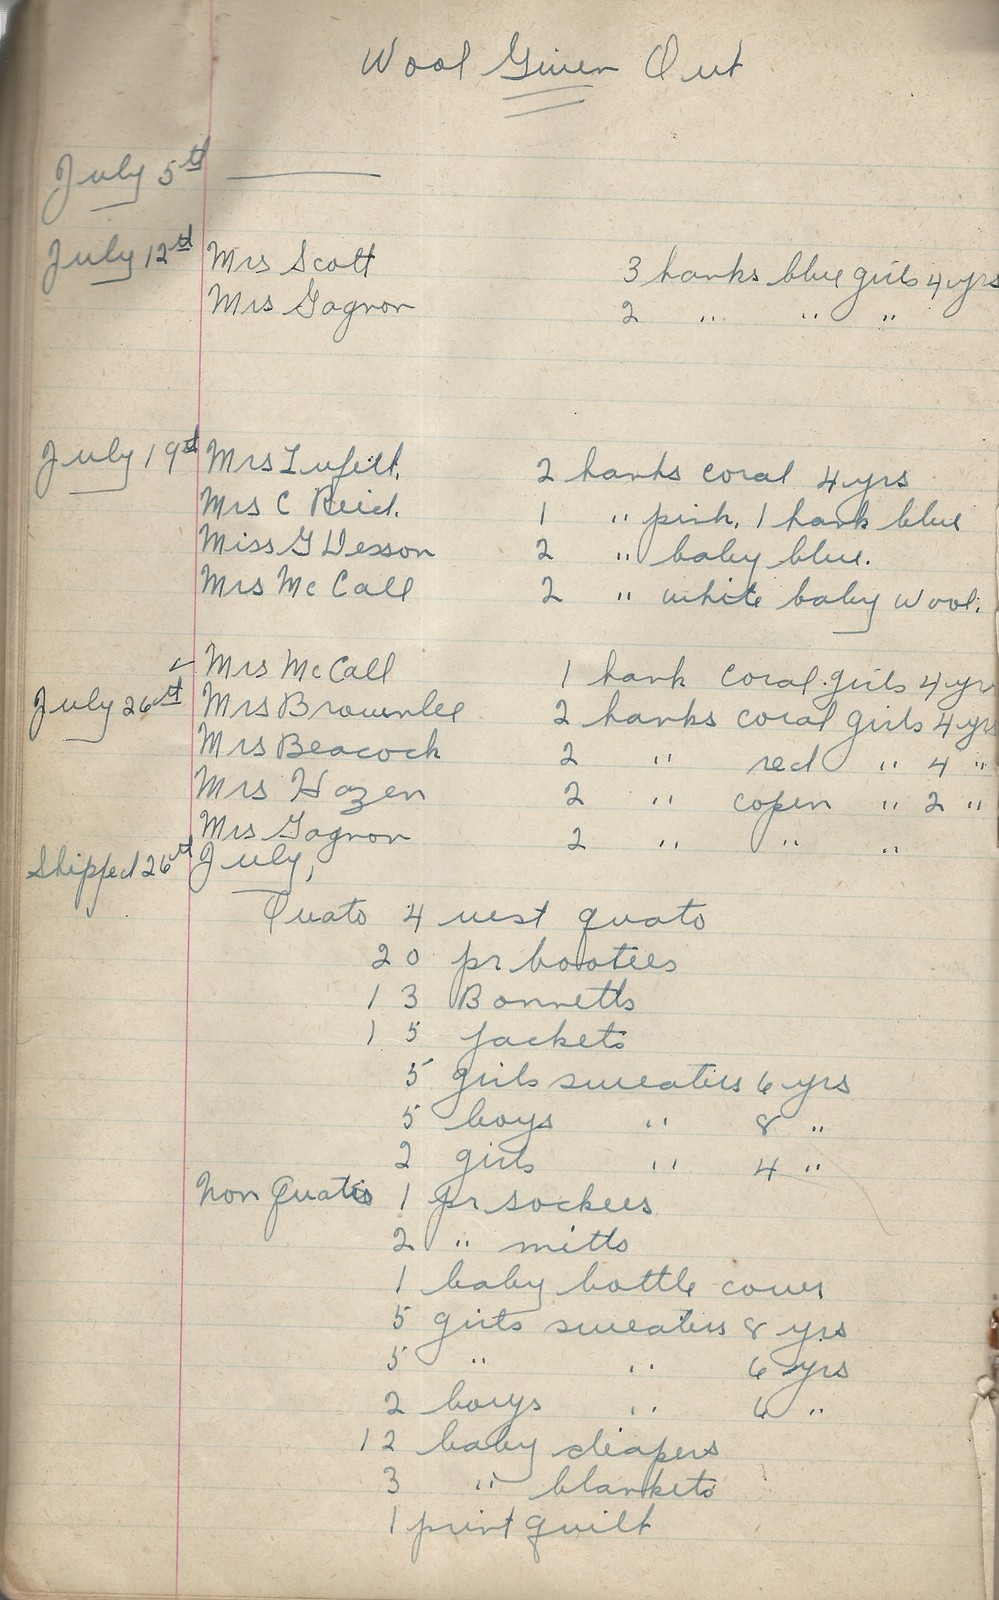 Wool Given Out
July 5th
July 12st Mrs Scott 3 hanks blue girls 4 yrs
Mrs Gagnon 2 " " "
July 19st Mrs Tufelt. 2 hanks coral 4 yrs
Mrs C Reid. 1 " pink, 1 hank blue
Miss G Wesson 2 " baby blue.
Mrs McCall 2 " white baby wool.
✓ Mrs McCall 1 hank coral girls 4 yr
July 26st Mrs Brownlee 2 hanks coral girls 4 yrs
Mrs Beacock 2 " red " 4 "
Mrs Hazen 2 " copen " 2 "
Mrs Gagnon 2 " " "
Shipped 26st July,
Quato 4 nest quato
20 pr bootees
13 Bonnetts
15 Jackets
5 girls sweaters 6 yrs
5 boys " 8 "
2 girls " 4 "
Non Quato 1 pr sockees
2 " mitts
1 baby bottle cover
5 girls sweaters 8 yrs
5 " " 6 yrs
2 boys " 6 "
12 baby diapers
3 " blankets
1 print quilt